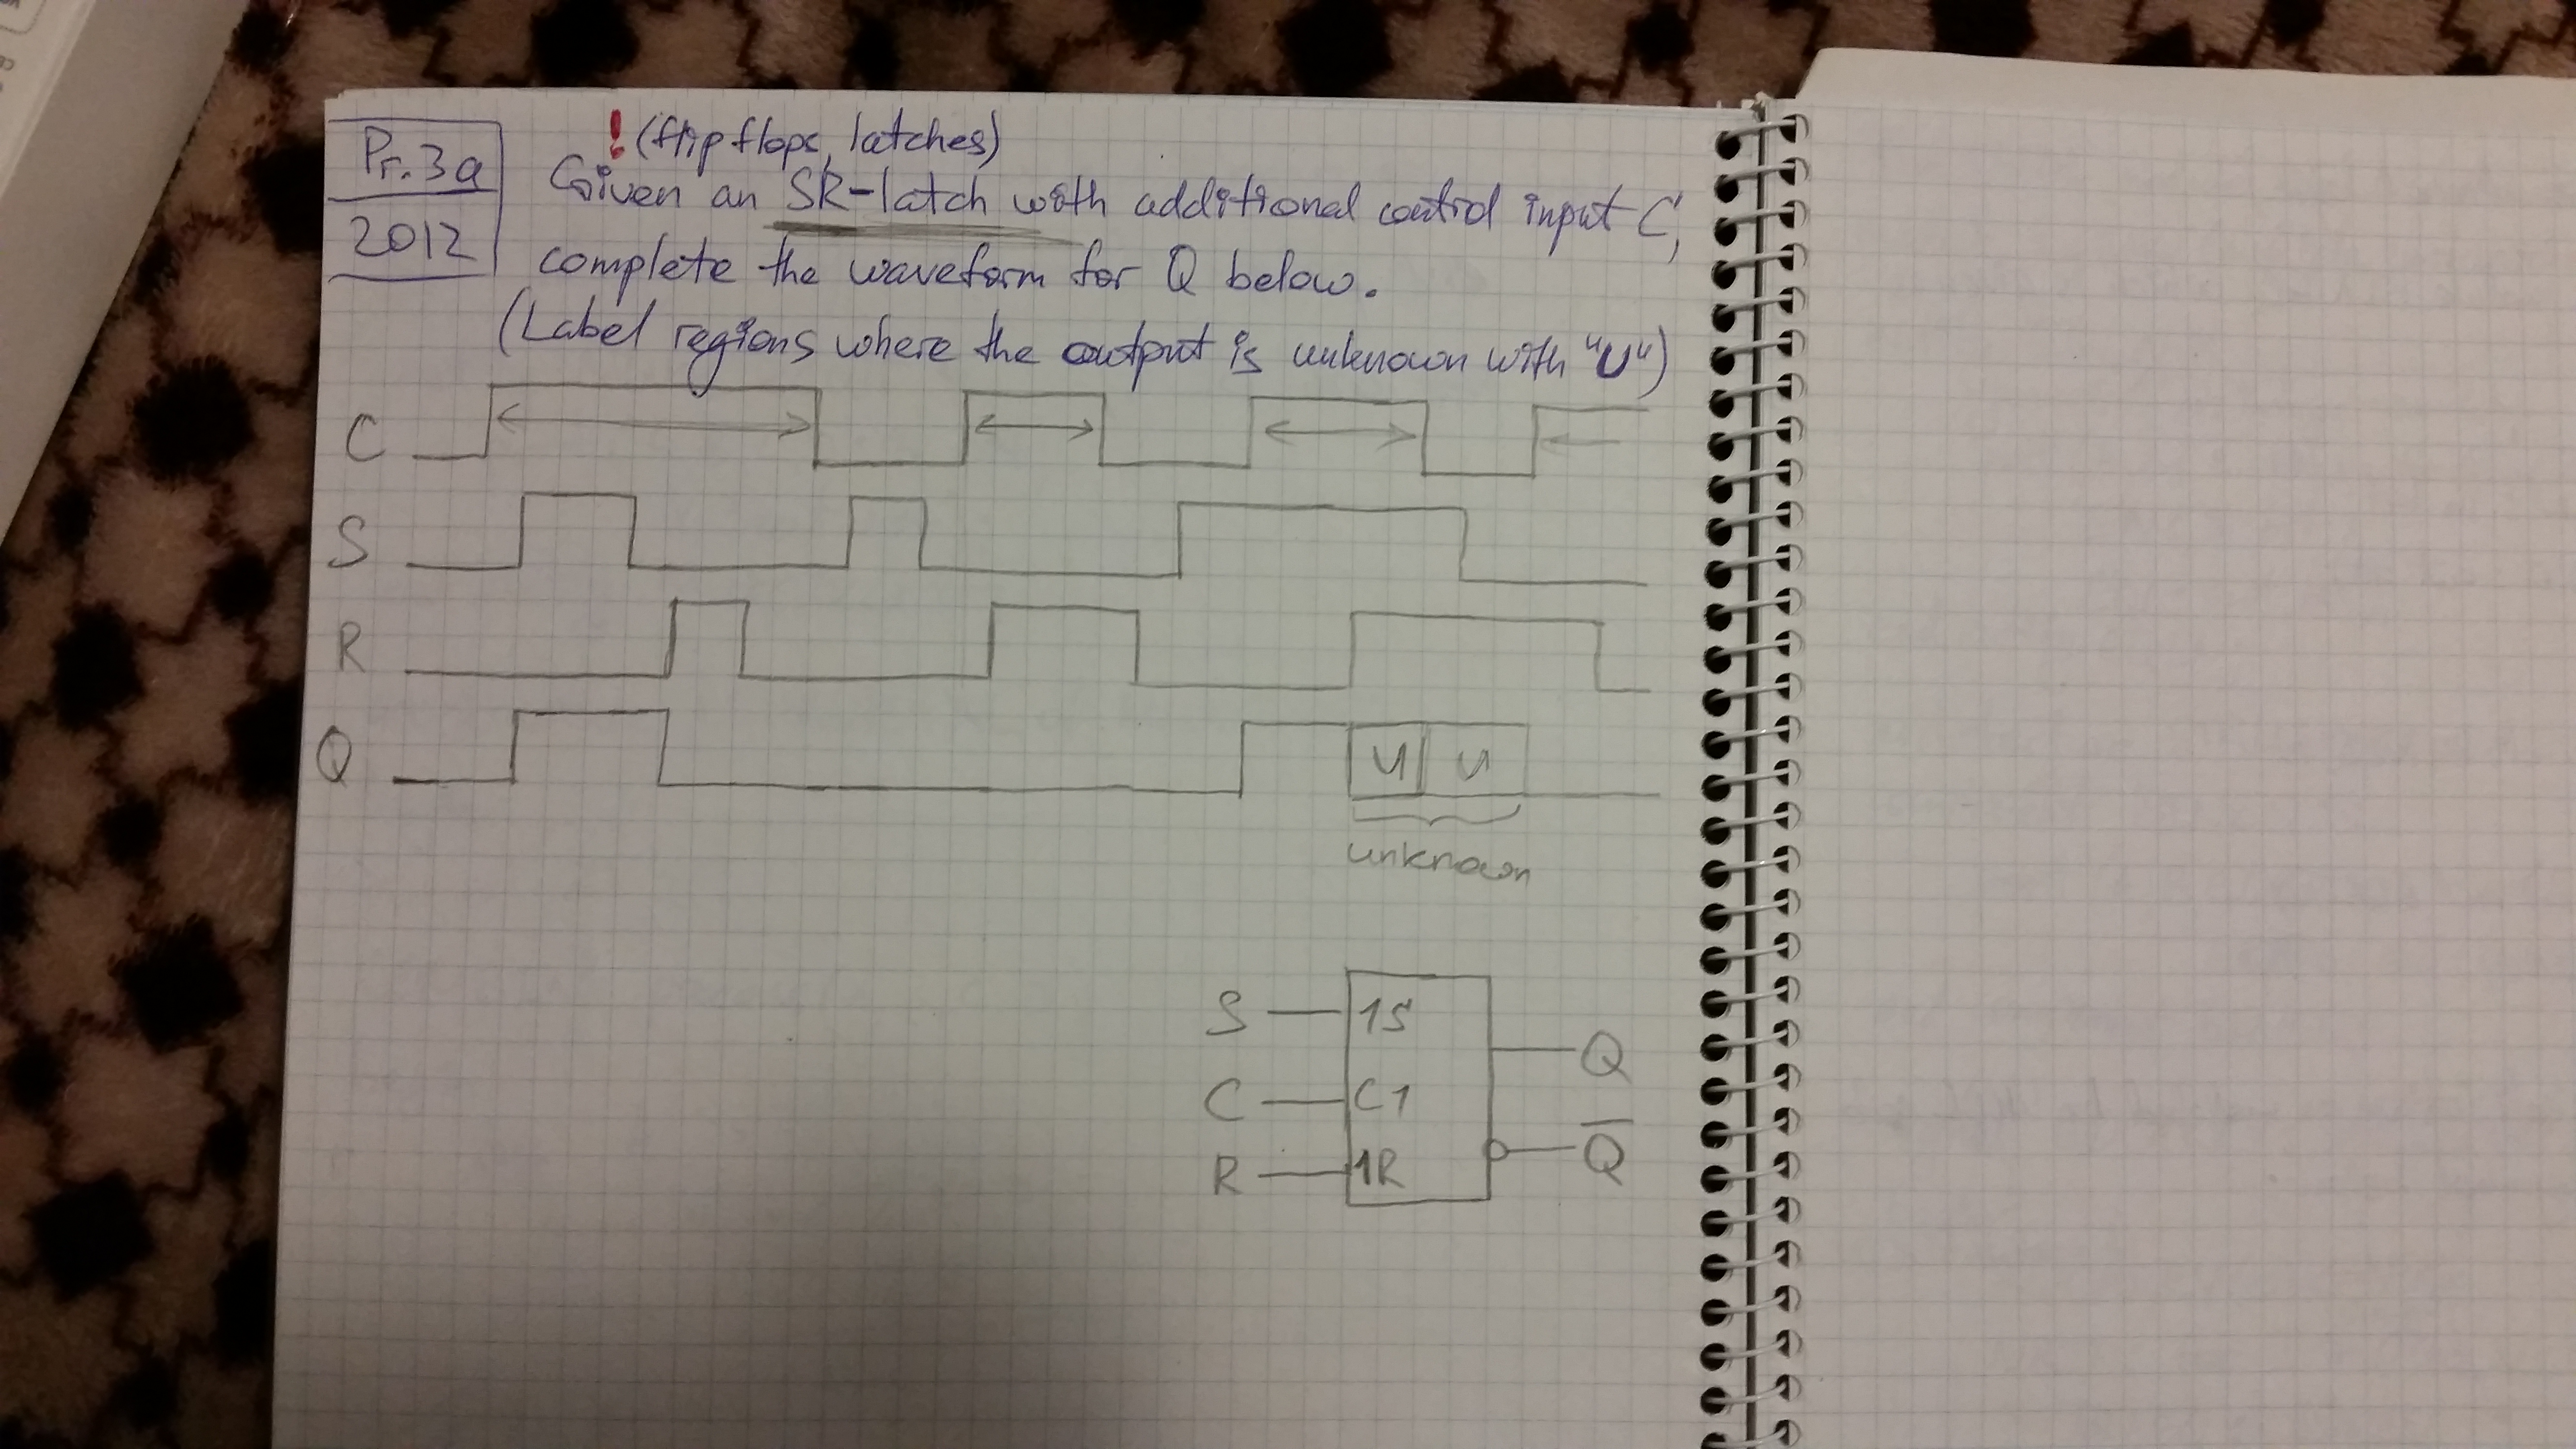 Pr. 3a
2012
! (flip flops, latches)
Given an SR-latch with additional control input C,
complete the waveform for Q below.
(Label regions where the output is unknown with "U")
C
S
R
Q
U U
unknown
S 1S
Q
C C1
R 1R
Q̅